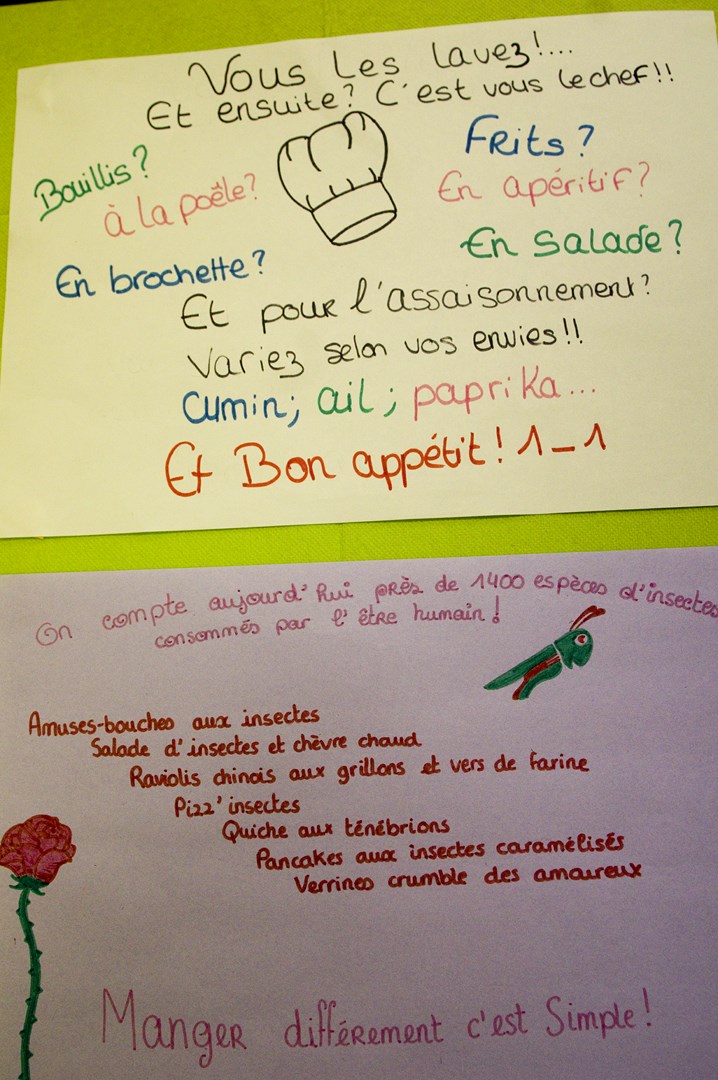 Vous les lavez!...
Et ensuite? C'est vous le chef!!
Bouillis?
Frits?
à la poêle?
En apéritif?
En brochette?
En salade?
Et pour l'assaisonnement?
Variez selon vos envies!!
Cumin; ail; paprika...
Et Bon appétit! 1_1
On compte aujourd'hui près de 1400 espèces d'insectes
consommés par l'être humain!
Amuses-bouches aux insectes
Salade d'insectes et chèvre chaud
Raviolis chinois aux grillons et vers de farine
Pizz'insectes
Quiche aux ténébrions
Pancakes aux insectes caramélisés
Verrines crumble des amoureux
Manger différement c'est Simple!